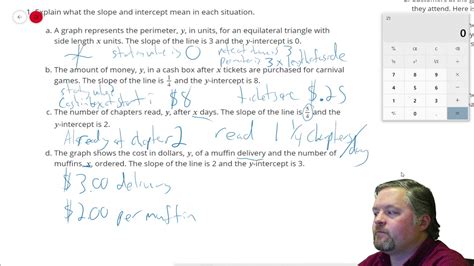 1. Explain what the slope and intercept mean in each situation.
a. A graph represents the perimeter, y, in units, for an equilateral triangle with
side length x units. The slope of the line is 3 and the y-intercept is 0.
start value is 0
rate of 3
perimeter is 3 x length of side
b. The amount of money, y, in a cash box after x tickets are purchased for carnival
games. The slope of the line is 1/4 and the y-intercept is 8.
start value
Cash in box at start is $8
tickets are $.25
c. The number of chapters read, y, after x days. The slope of the line is 5/4 and the
y-intercept is 2.
Already at chapter 2
read 1 1/4 chapters/day
d. The graph shows the cost in dollars, y, of a muffin delivery and the number of
muffins, x, ordered. The slope of the line is 2 and the y-intercept is 3.
$3.00 delivery
$2.00 per muffin
they attend. Here is
0
7 8 9
4 5 6
1 2 3